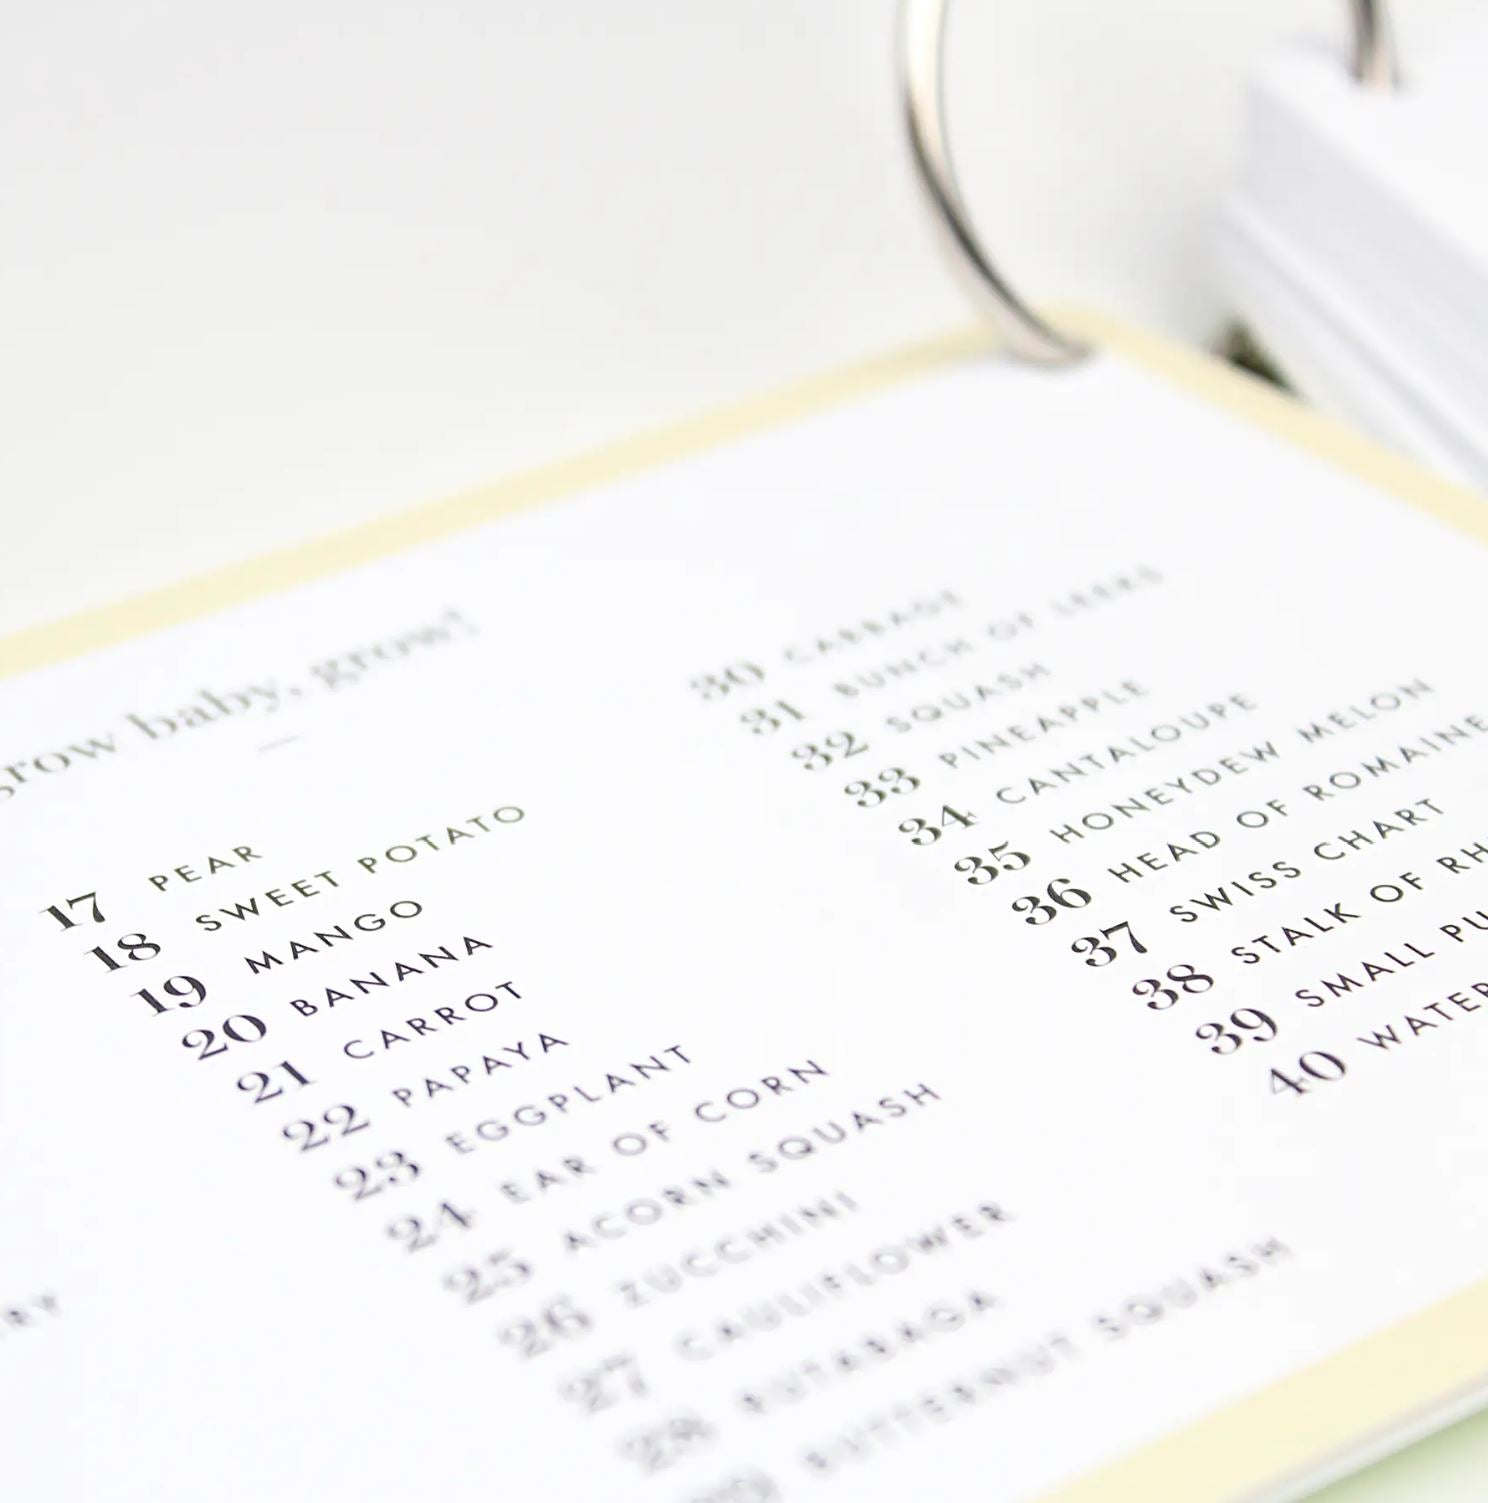 grow baby, grow!
17 PEAR
18 SWEET POTATO
19 MANGO
20 BANANA
21 CARROT
22 PAPAYA
23 EGGPLANT
24 EAR OF CORN
25 ACORN SQUASH
26 ZUCCHINI
27 CAULIFLOWER
28 RUTABAGA
BUTTERNUT SQUASH
30 CABBAGE
31 BUNCH OF LEEKS
32 SQUASH
33 PINEAPPLE
34 CANTALOUPE
35 HONEYDEW MELON
36 HEAD OF ROMAINE
37 SWISS CHART
38 STALK OF RH
39 SMALL PU
40 WATER